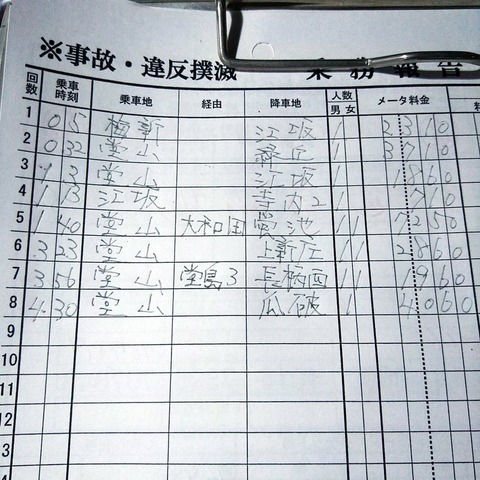 ※事故・違反撲滅 乗務報告
回数 乗車時刻 乗車地 経由 降車地 人数 男 女 メータ料金
1 0 5 梅新 江坂 1 2310
2 0 32 堂山 緑丘 1 3710
3 1 3 堂山 江坂 1 1860
4 1 13 江坂 寺内2 1 710
5 1 40 堂山 大和田 蛍池 1 1 7250
6 3 23 堂山 上新庄 1 1 2860
7 3 56 堂山 堂島3 長柄西 1 1 1960
8 4.30 堂山 瓜破 1 4060
9
10
11
12
3
4